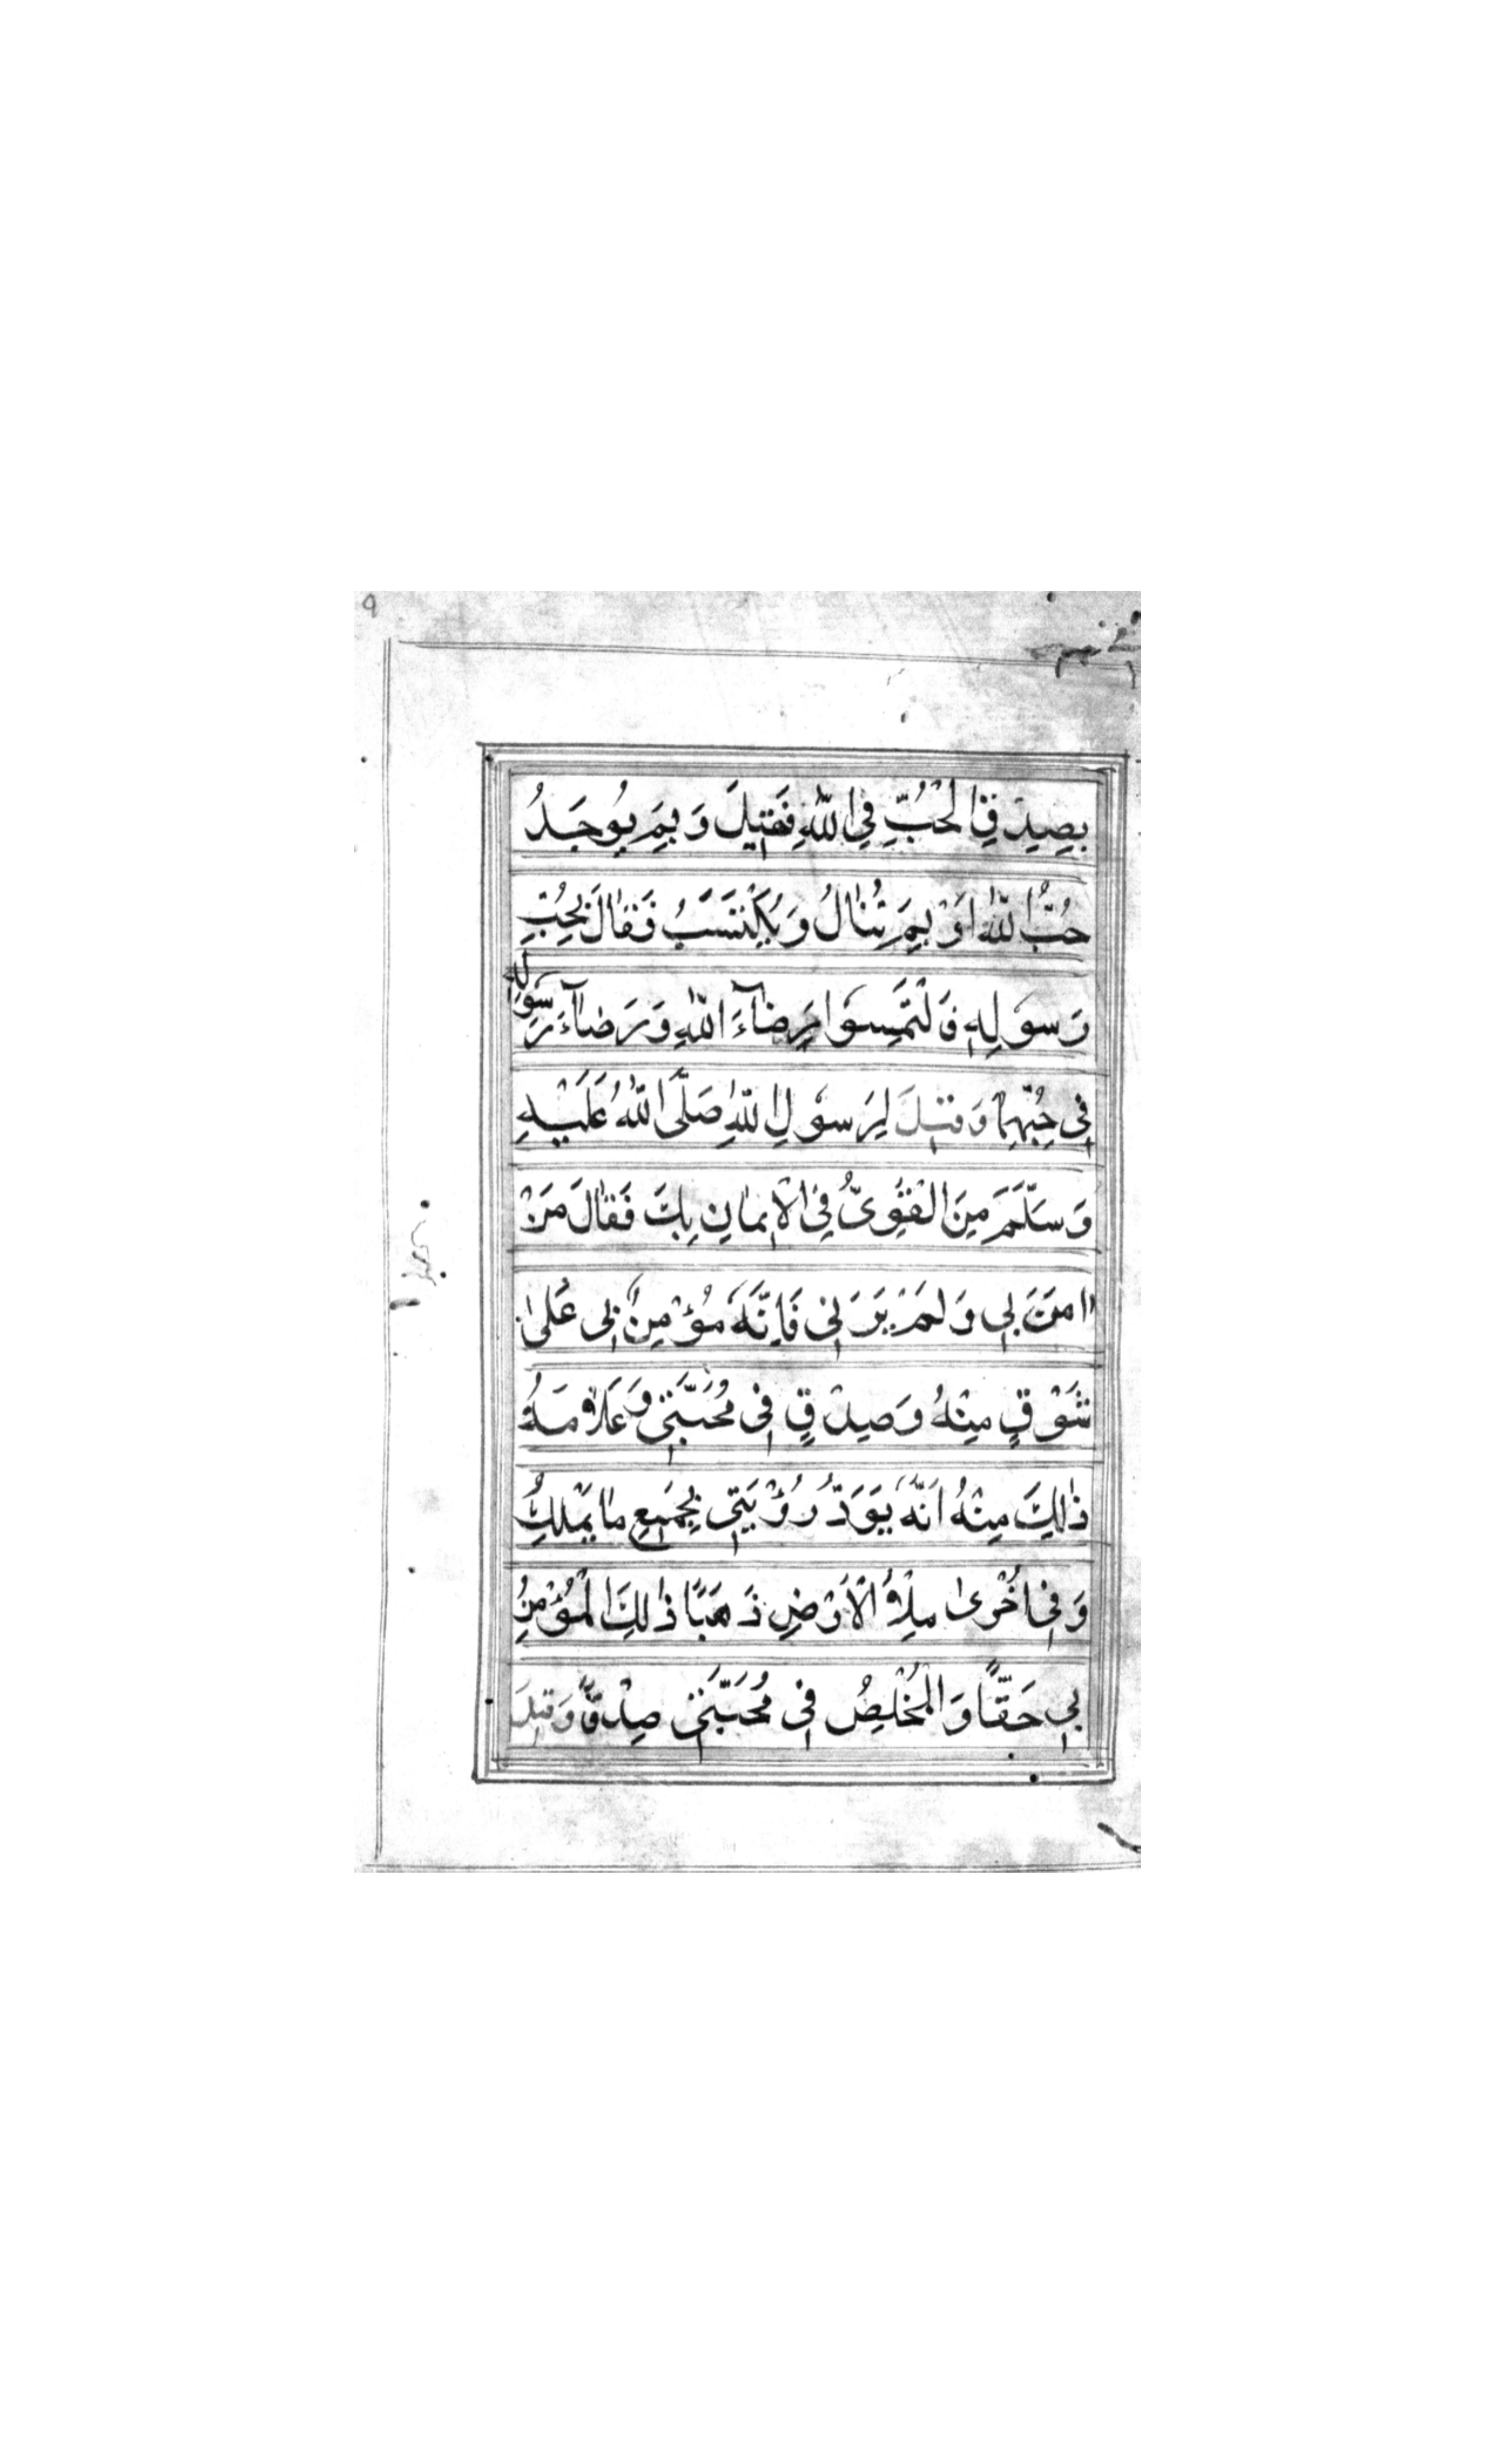 ٩
بِصِدْقِ الْحُبِّ فِي اللّٰهِ فَقِيلَ وَبِمَ يُوجَدُ
حُبُّ اللّٰهِ اَوْ بِمَ يُنَالُ وَيُكْتَسَبُ فَقَالَ بِحُبِّ
رَسُولِهِ فَالْتَمِسُوا رِضَآءَ اللّٰهِ وَرِضَآءَ رَسُولِهِ
فِي حُبِّهِمَا وَقِيلَ لِرَسُولِ اللّٰهِ صَلَّى اللّٰهُ عَلَيْهِ
وَسَلَّمَ مَنِ الْقَوِيُّ فِي الْاِيمَانِ بِكَ فَقَالَ مَنْ
اٰمَنَ بِي وَلَمْ يَرَنِي فَاِنَّهُ مُؤْمِنٌ بِي عَلٰى
شَوْقٍ مِنْهُ وَصِدْقٍ فِي مَحَبَّتِي وَعَلَامَةُ
ذٰلِكَ مِنْهُ اَنَّهُ يَوَدُّ رُؤْيَتِي بِجَمِيعِ مَا يَمْلِكُ
وَفِي اُخْرٰى مِلْأُ الْاَرْضِ ذَهَبًا ذٰلِكَ الْمُؤْمِنُ
بِي حَقًّا وَالْمُخْلِصُ فِي مَحَبَّتِي صِدْقًا وَقِيلَ